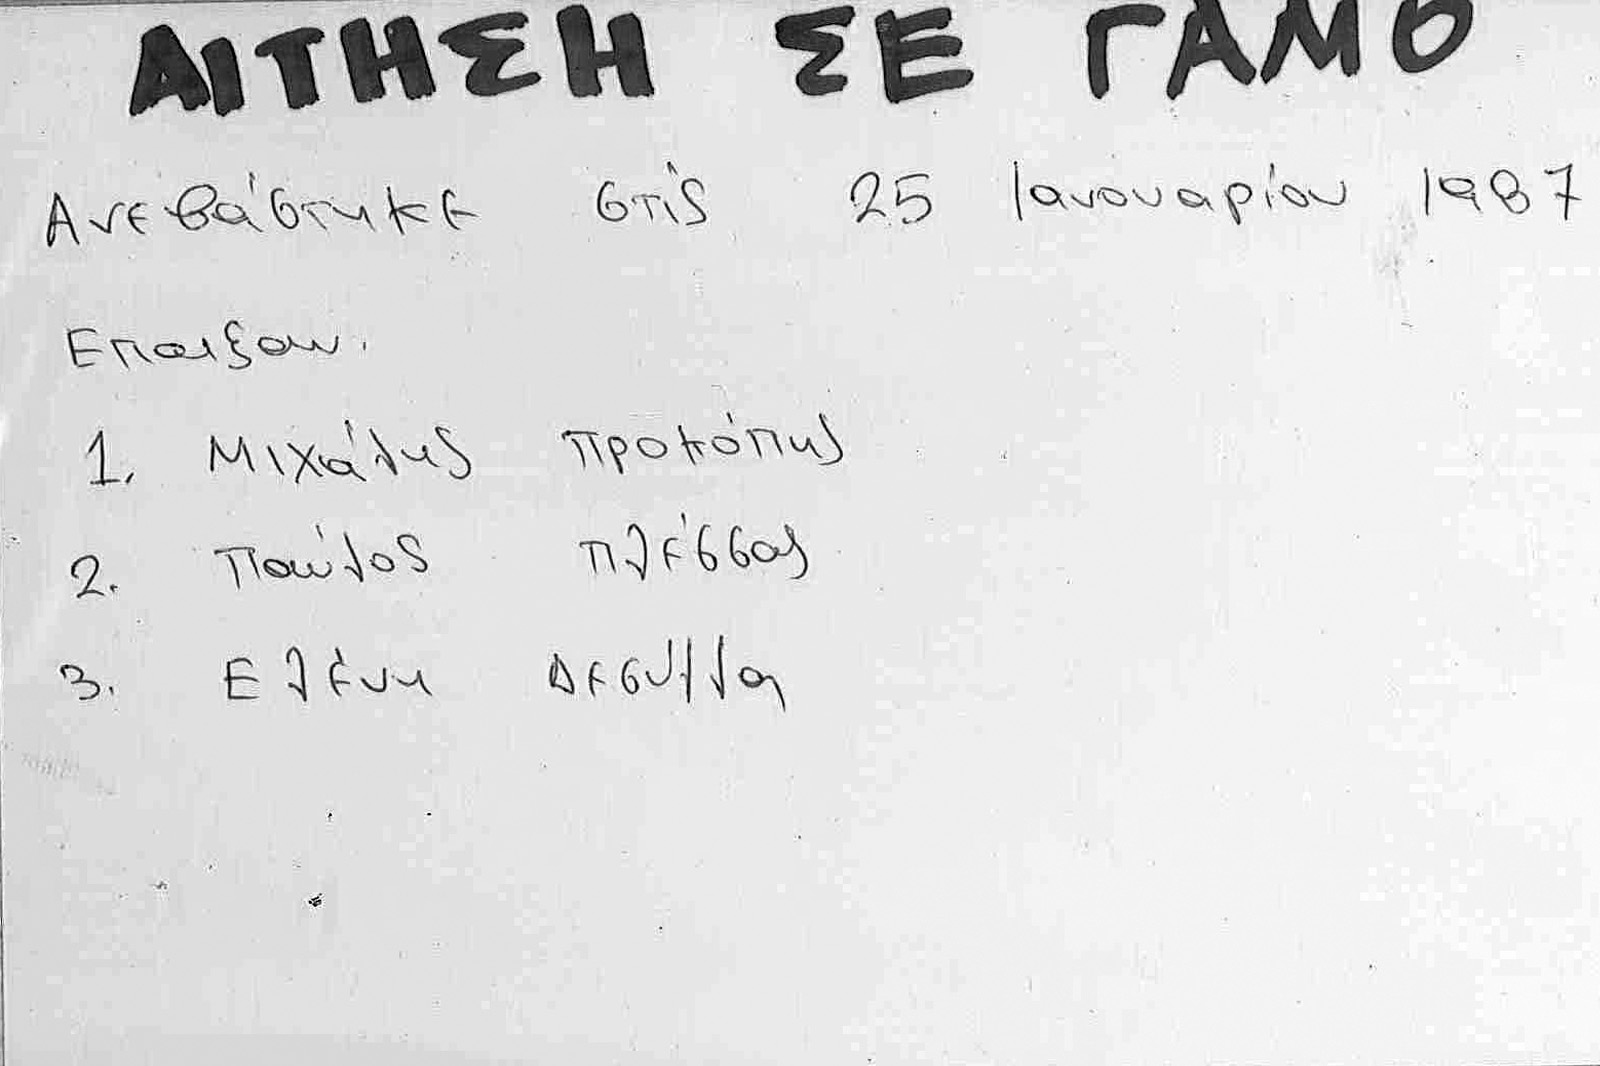 ΑΙΤΗΣΗ ΣΕ ΓΑΜΟ
Ανεβάστηκε στίς 25 Ιανουαρίου 1987
Επαιξαν.
1. Μιχάλης Προκόπης
2. Παύλος Πλέσσας
3. Ελένη Δεσύλλα